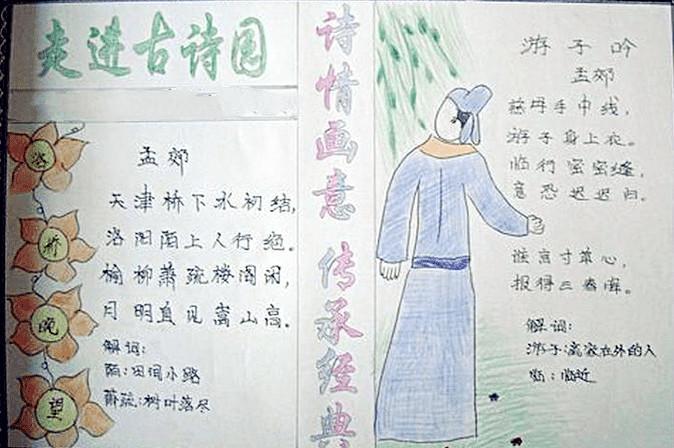 走进古诗园
洛桥晚望
孟郊
天津桥下冰初结,
洛阳陌上人行绝。
榆柳萧疏楼阁闲,
月明直见嵩山高。
解词:
陌:田间小路
萧疏:树叶落尽
诗情画意 传承经典
游子吟
孟郊
慈母手中线,
游子身上衣。
临行密密缝,
意恐迟迟归。
谁言寸草心,
报得三春晖。
解词:
游子:离家在外的人
临:临近